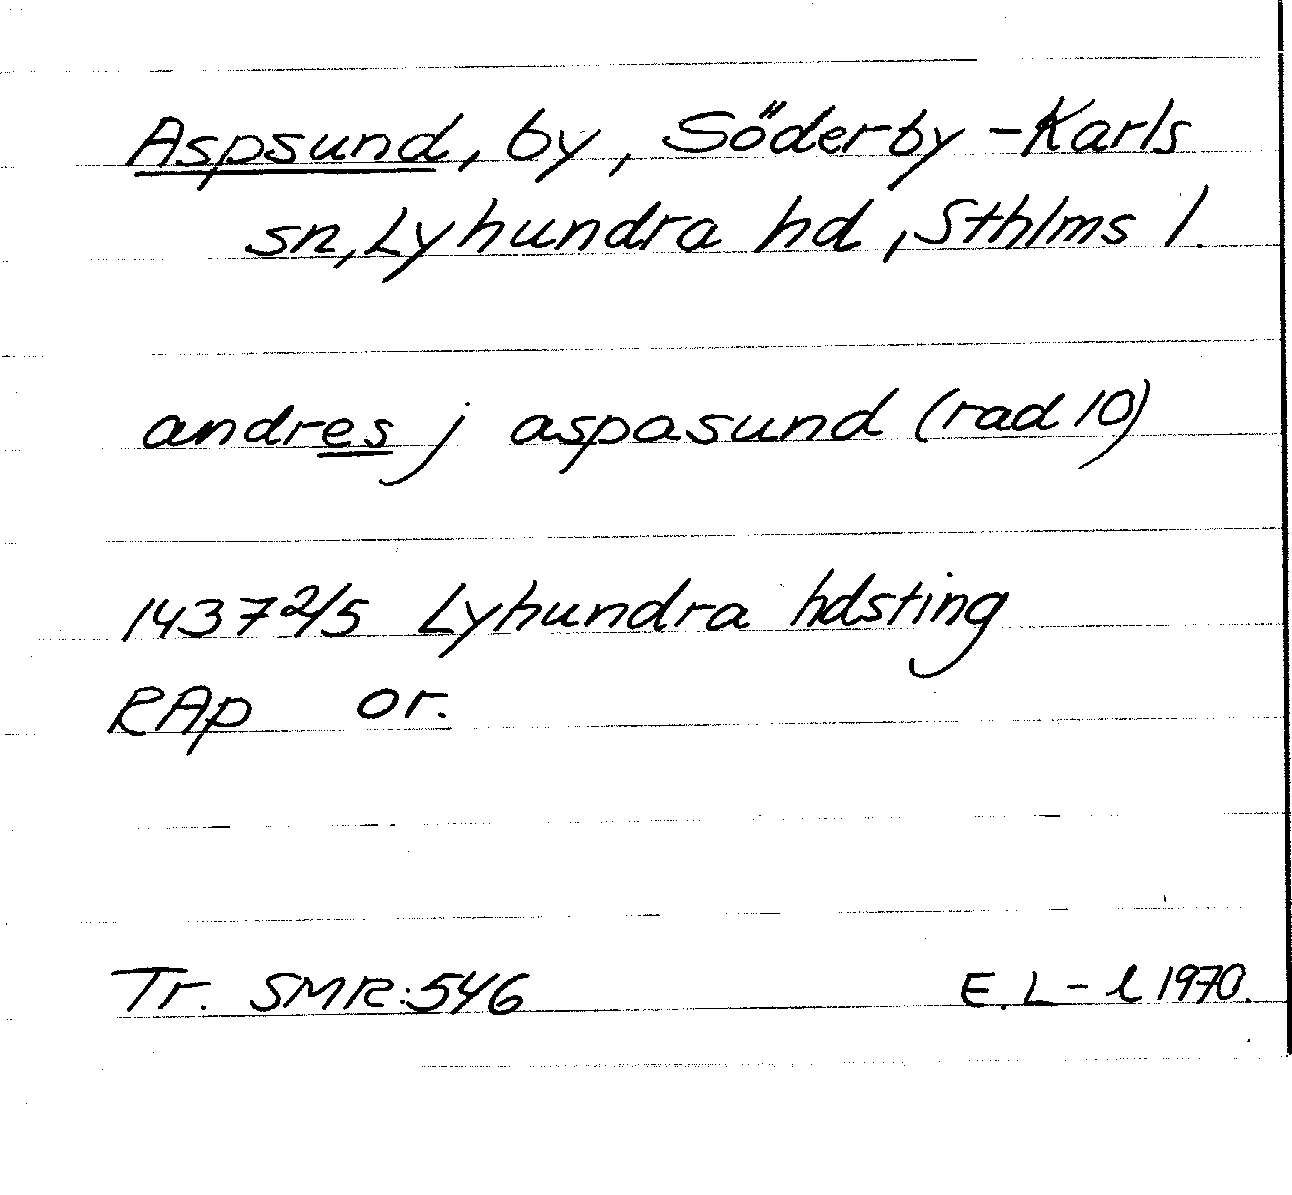 Aspsund, by, Söderby-Karls
sn, Lyhundra hd, Sthlms l.
andres j aspasund (rad 10)
1437 2/5 Lyhundra hdsting
RAp or.
Tr. SMR:546 E.L-l 1970.